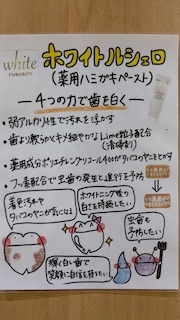 white
ruscello
ホワイトルシェロ
(薬用ハミガキペースト)
―4つの力で歯を白く―
・弱アルカリ性で汚れを浮かす
・歯より軟らかくキメ細やかなLime粒子配合
(清掃剤)
・薬用成分ポリエチレングリコール400がタバコのヤニをとかす
・フッ素配合で虫歯の発生と進行を予防
着色汚れや
タバコのヤニが気になる
ホワイトニング後の
白さを持続したい
虫歯も
予防したい
輝く白い歯で
笑顔に自信を持ちたい